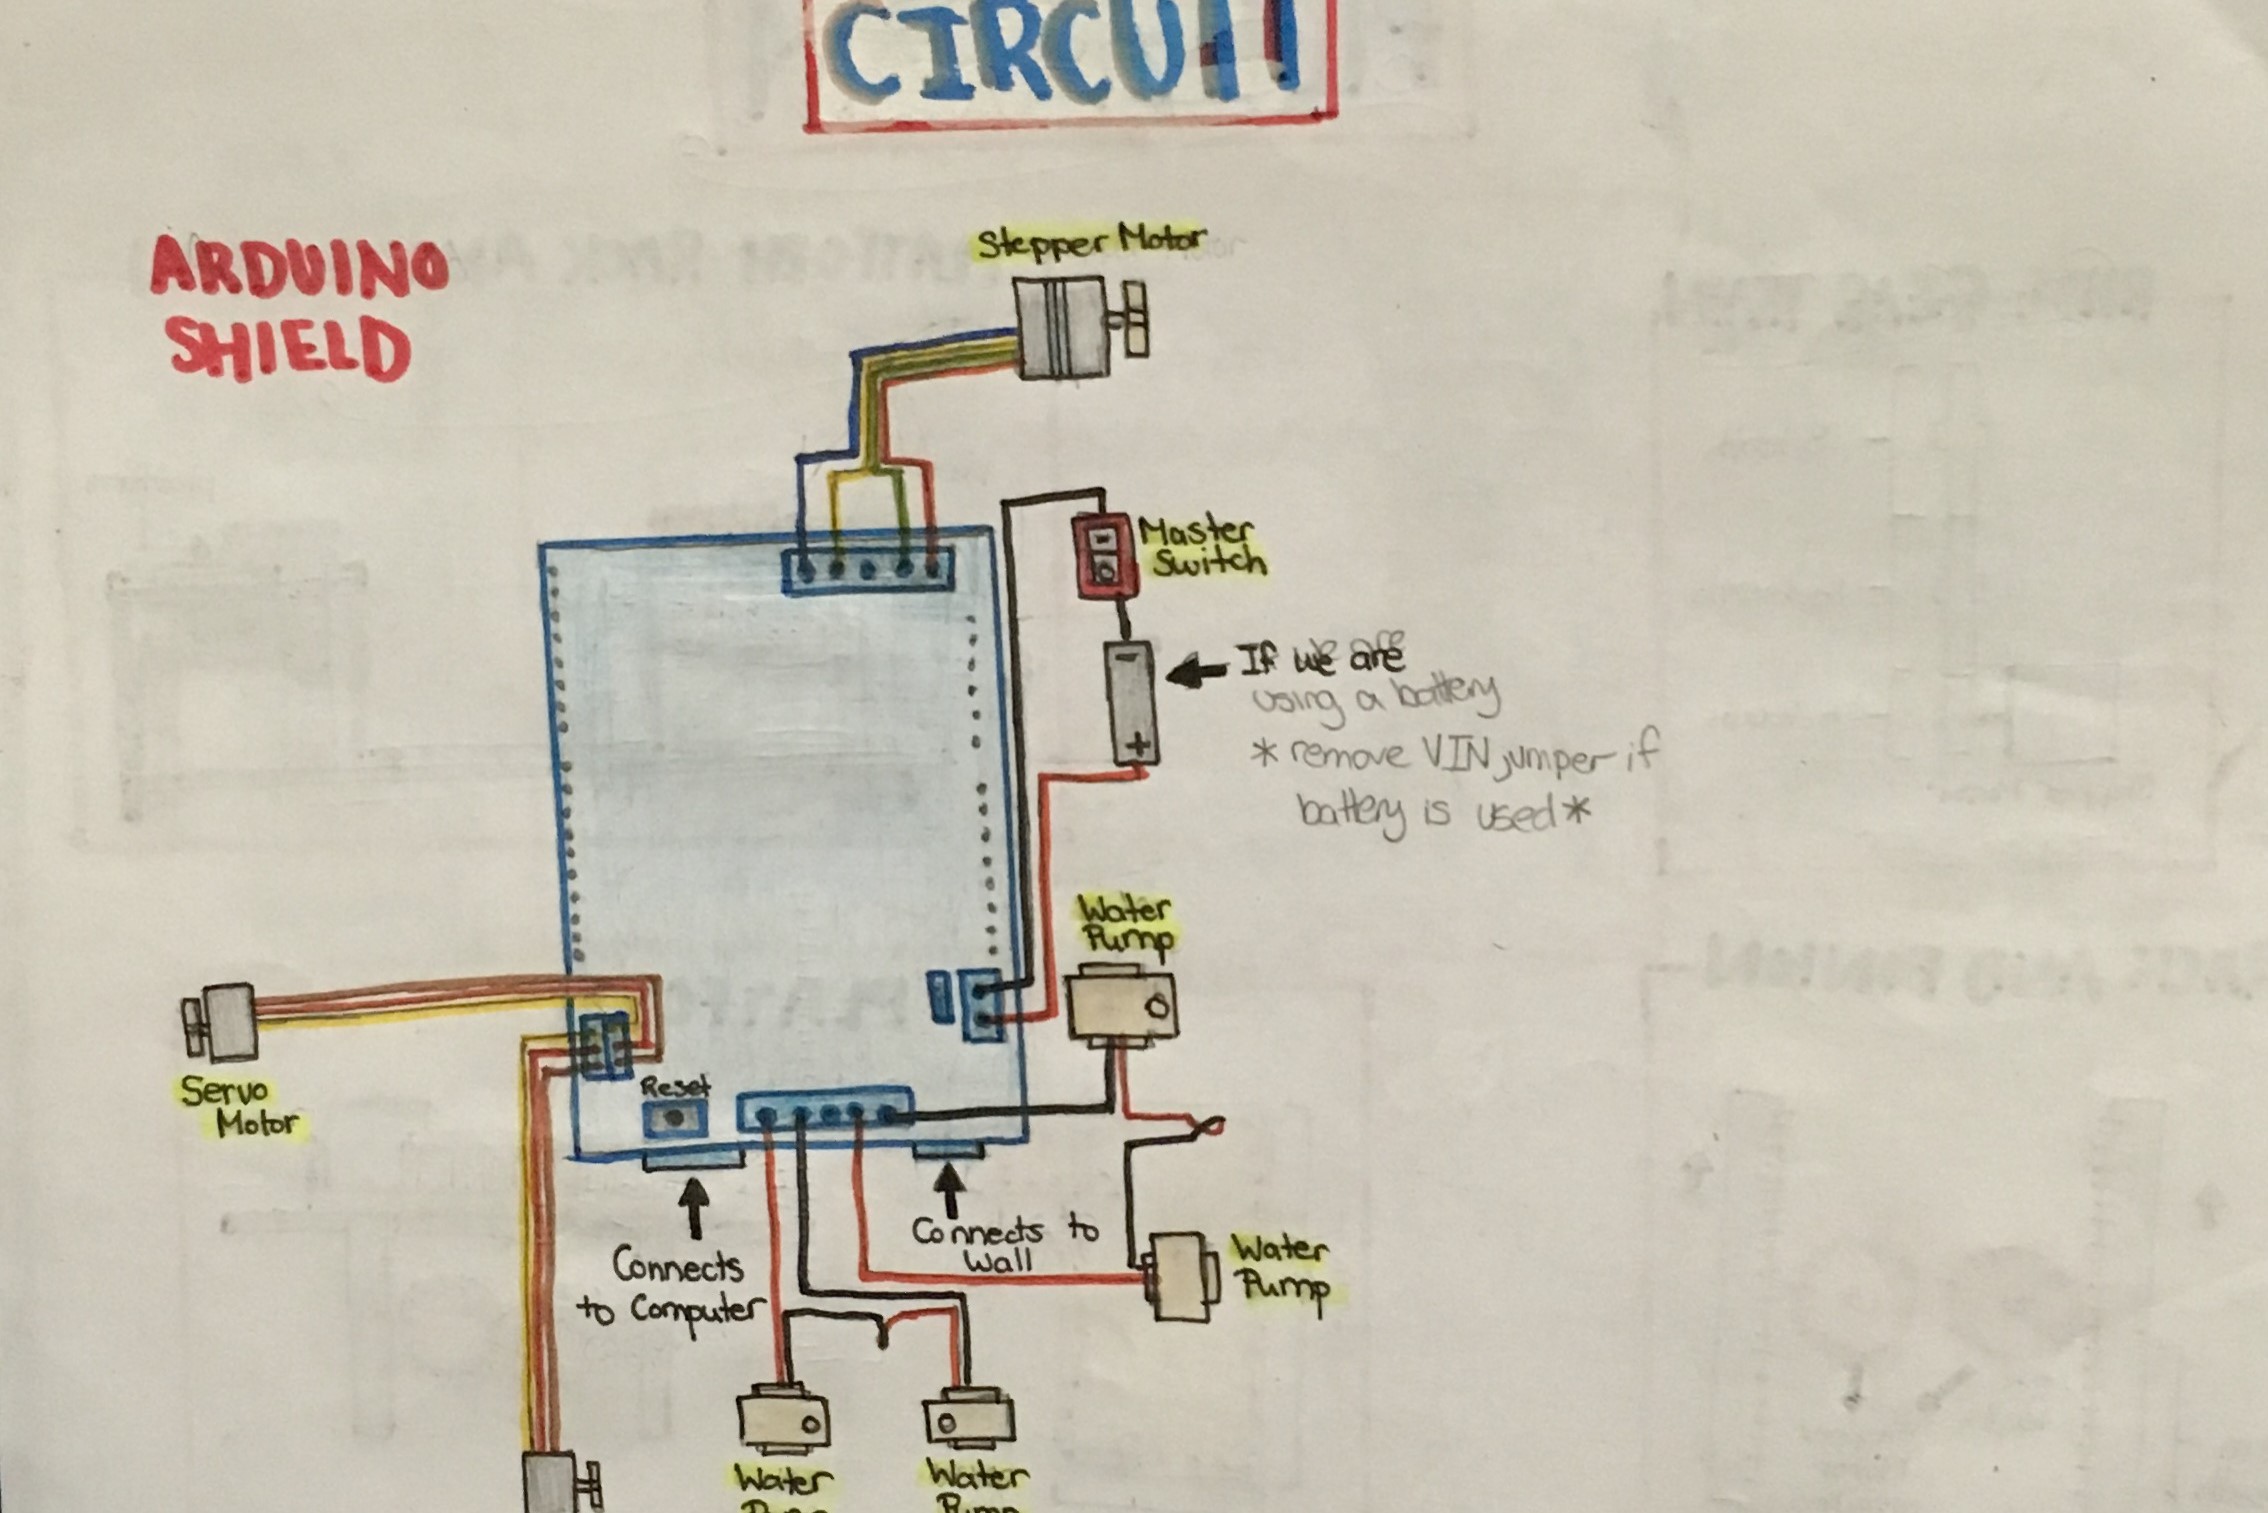 CIRCUIT
ARDUINO
SHIELD
Stepper Motor
Master
Switch
-
+
If we are
using a battery
*remove VIN jumper if
battery is used*
Water
Pump
Servo
Motor
Reset
Connects
to Computer
Connects to
Wall
Water
Pump
Water
Pump
Water
Pump